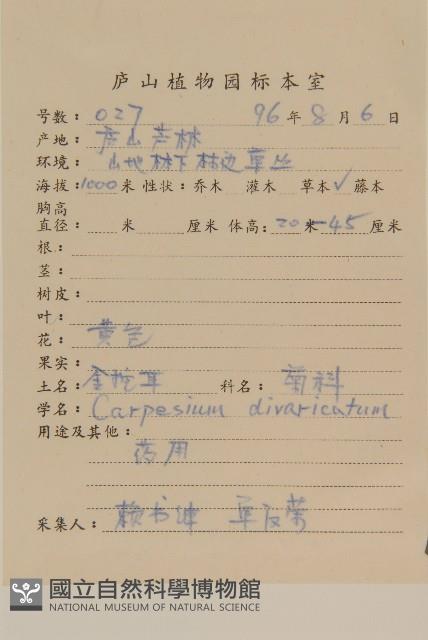 庐山植物园标本室
号数: 027 96年8月6日
产地: 庐山芦林
环境: 山地林下林边草丛
海拔: 1000米 性状: 乔木 灌木 草本✓ 藤本
胸高
直径: 米 厘米 体高: 20米-45厘米
根:
茎:
树皮:
叶:
花: 黄色
果实:
土名: 金挖耳 科名: 菊科
学名: Carpesium divaricatum
用途及其他:
药用
采集人: 赖书
國立自然科學博物館
NATIONAL MUSEUM OF NATURAL SCIENCE